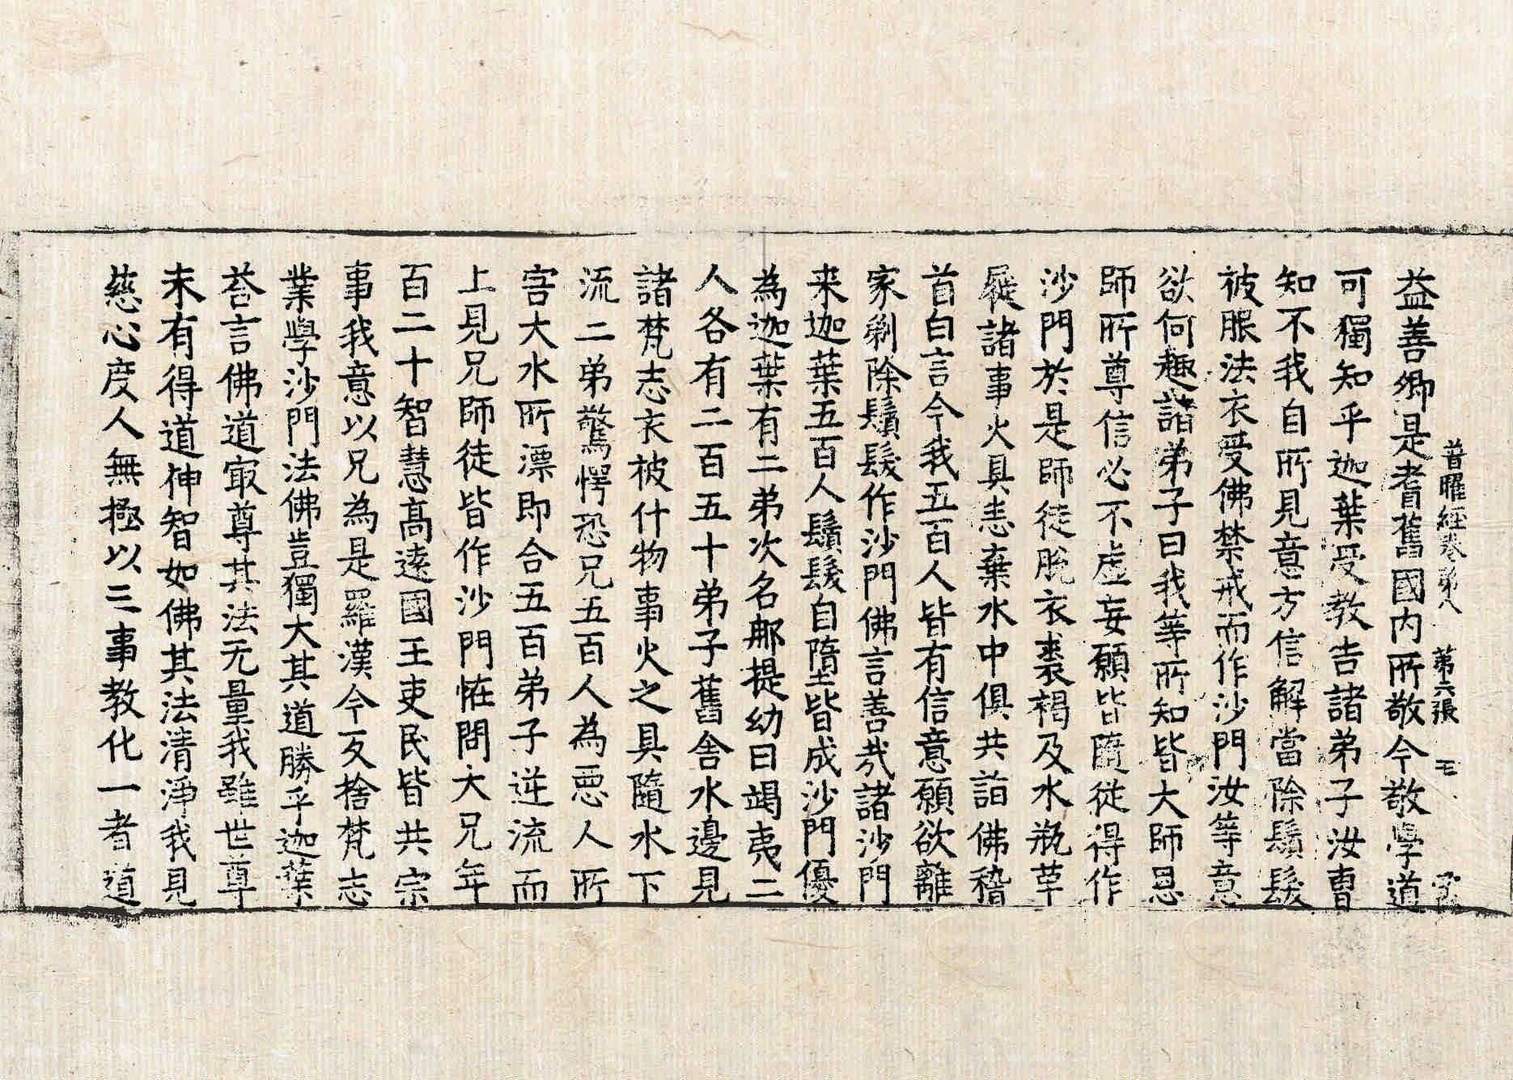 普曜經卷第八 第六張
益善卿是耆舊國內所敬今敬學道
可獨知乎迦葉受教告諸弟子汝曹
知不我自所見意方信解當除鬚髮
被服法衣受佛禁戒而作沙門汝等意
欲何趣諸弟子曰我等所知皆大師恩
師所尊信必不虛妄願皆隨從得作
沙門於是師徒脫衣裘褐及水瓶革
屣諸事火具悉棄水中俱共詣佛稽
首白言今我五百人皆有信意願欲離
家剃除鬚髮作沙門佛言善哉諸沙門
来迦葉五百人鬚髮自墮皆成沙門優
為迦葉有二弟次名那提幼曰竭夷二
人各有二百五十弟子舊舍水邊見
諸梵志衣被什物事火之具隨水下
流二弟驚愕恐兄五百人為惡人所
害大水所漂即合五百弟子逆流而
上見兄師徒皆作沙門恠問大兄年
百二十智慧髙遠國王吏民皆共宗
事我意以兄為是羅漢今反捨梵志
業學沙門法佛豈獨大其道勝乎迦葉
荅言佛道㝡尊其法无量我雖世尊
未有得道神智如佛其法清淨我見
慈心度人無極以三事教化一者道